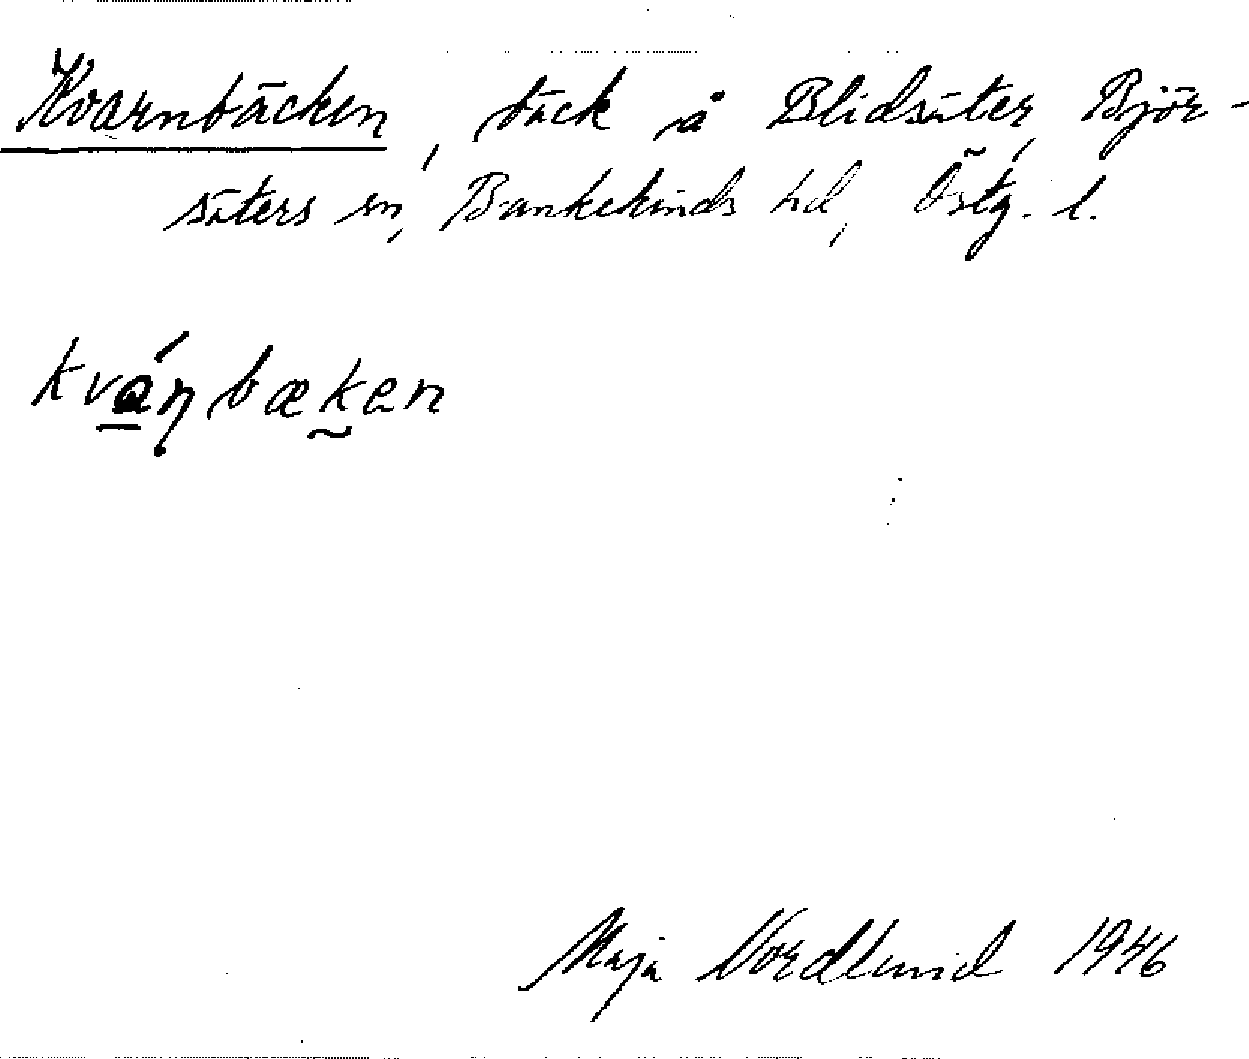 Kvarnbäcken, bäck å Blidsäter, Björ-
säters sn, Bankekinds hd, Östg. l.
kvánbæken
Maja Nordlund 1946